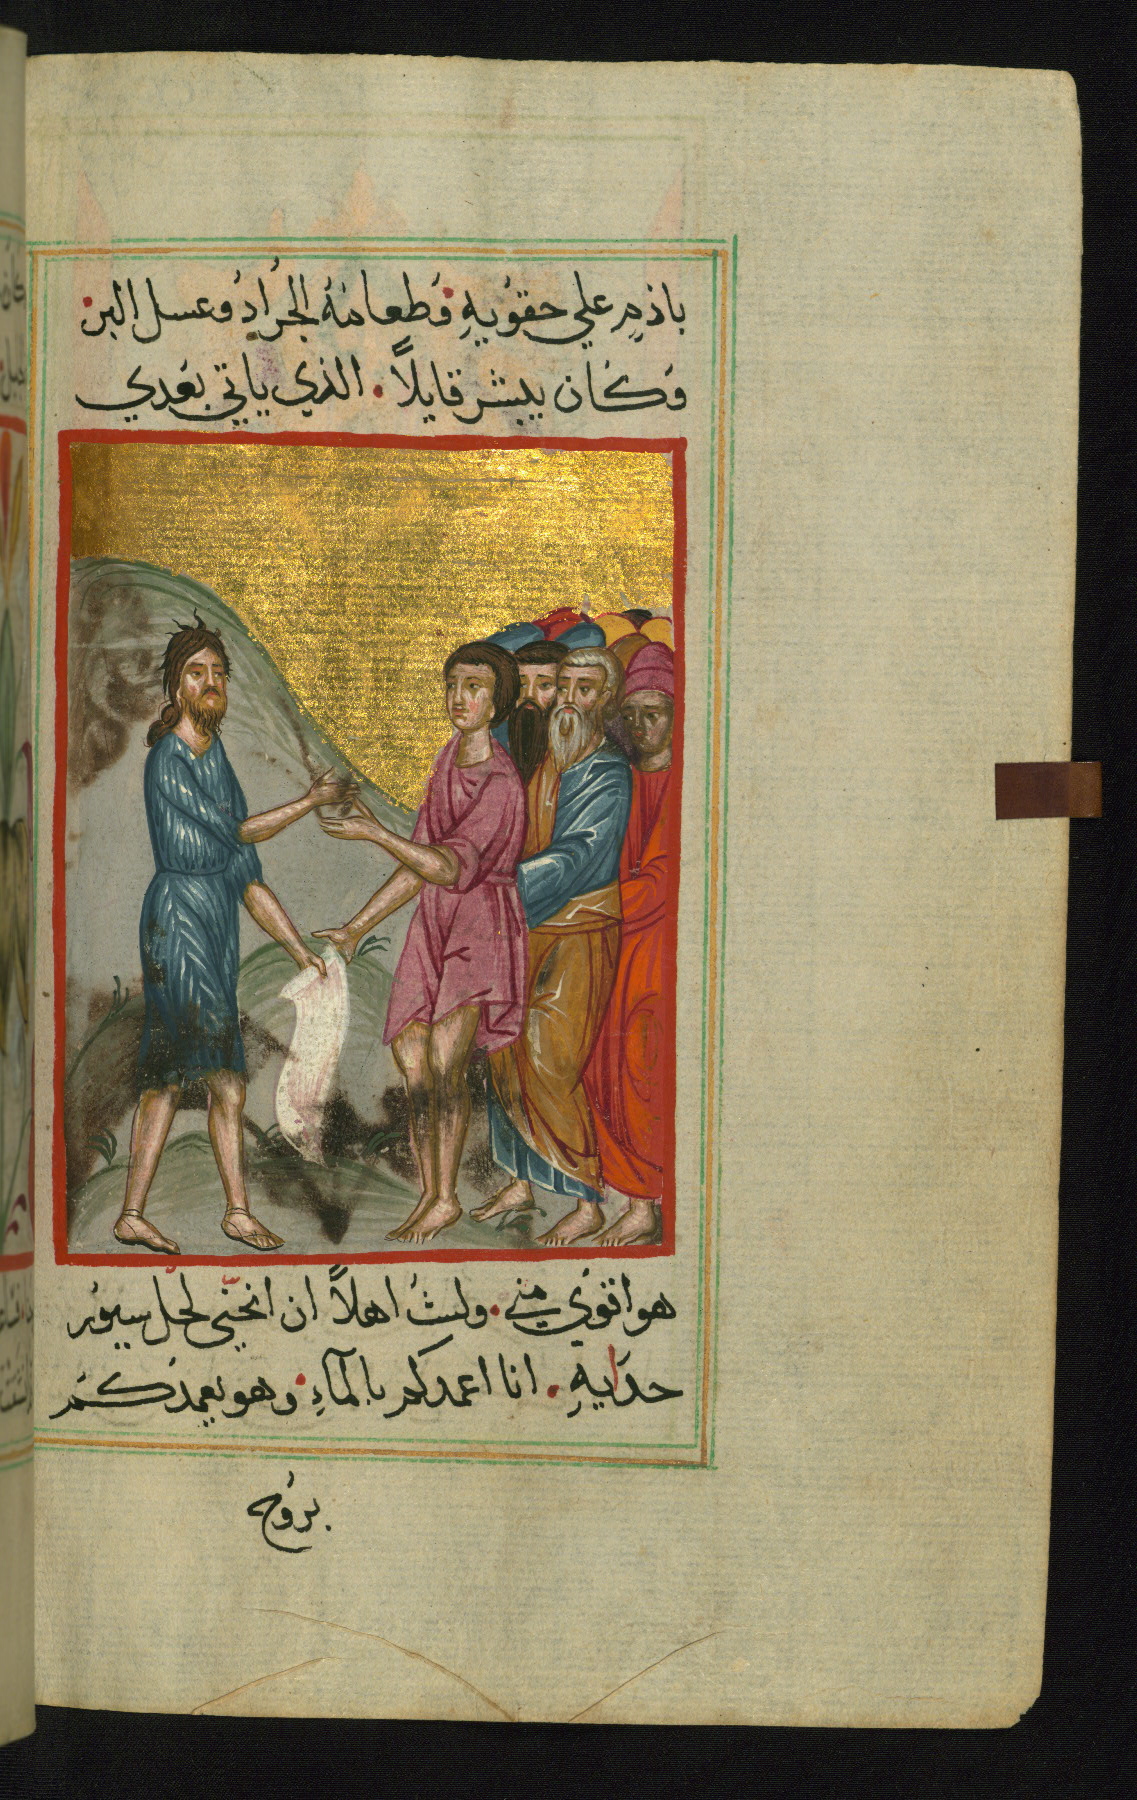 بادمٍ علي حقوُيهِ وَطعامهُ الجرُادُ وعسل البر
وَكَان يبشر قايلاً. الذي ياتي بعَدي
هو اقوَي مني. ولستُ اهلاً ان انحَنّي لحلّ سيوُر
حداَيهِ. انا اعمدكم بالمآءِ وهو يعمدَكمُ
بروُح